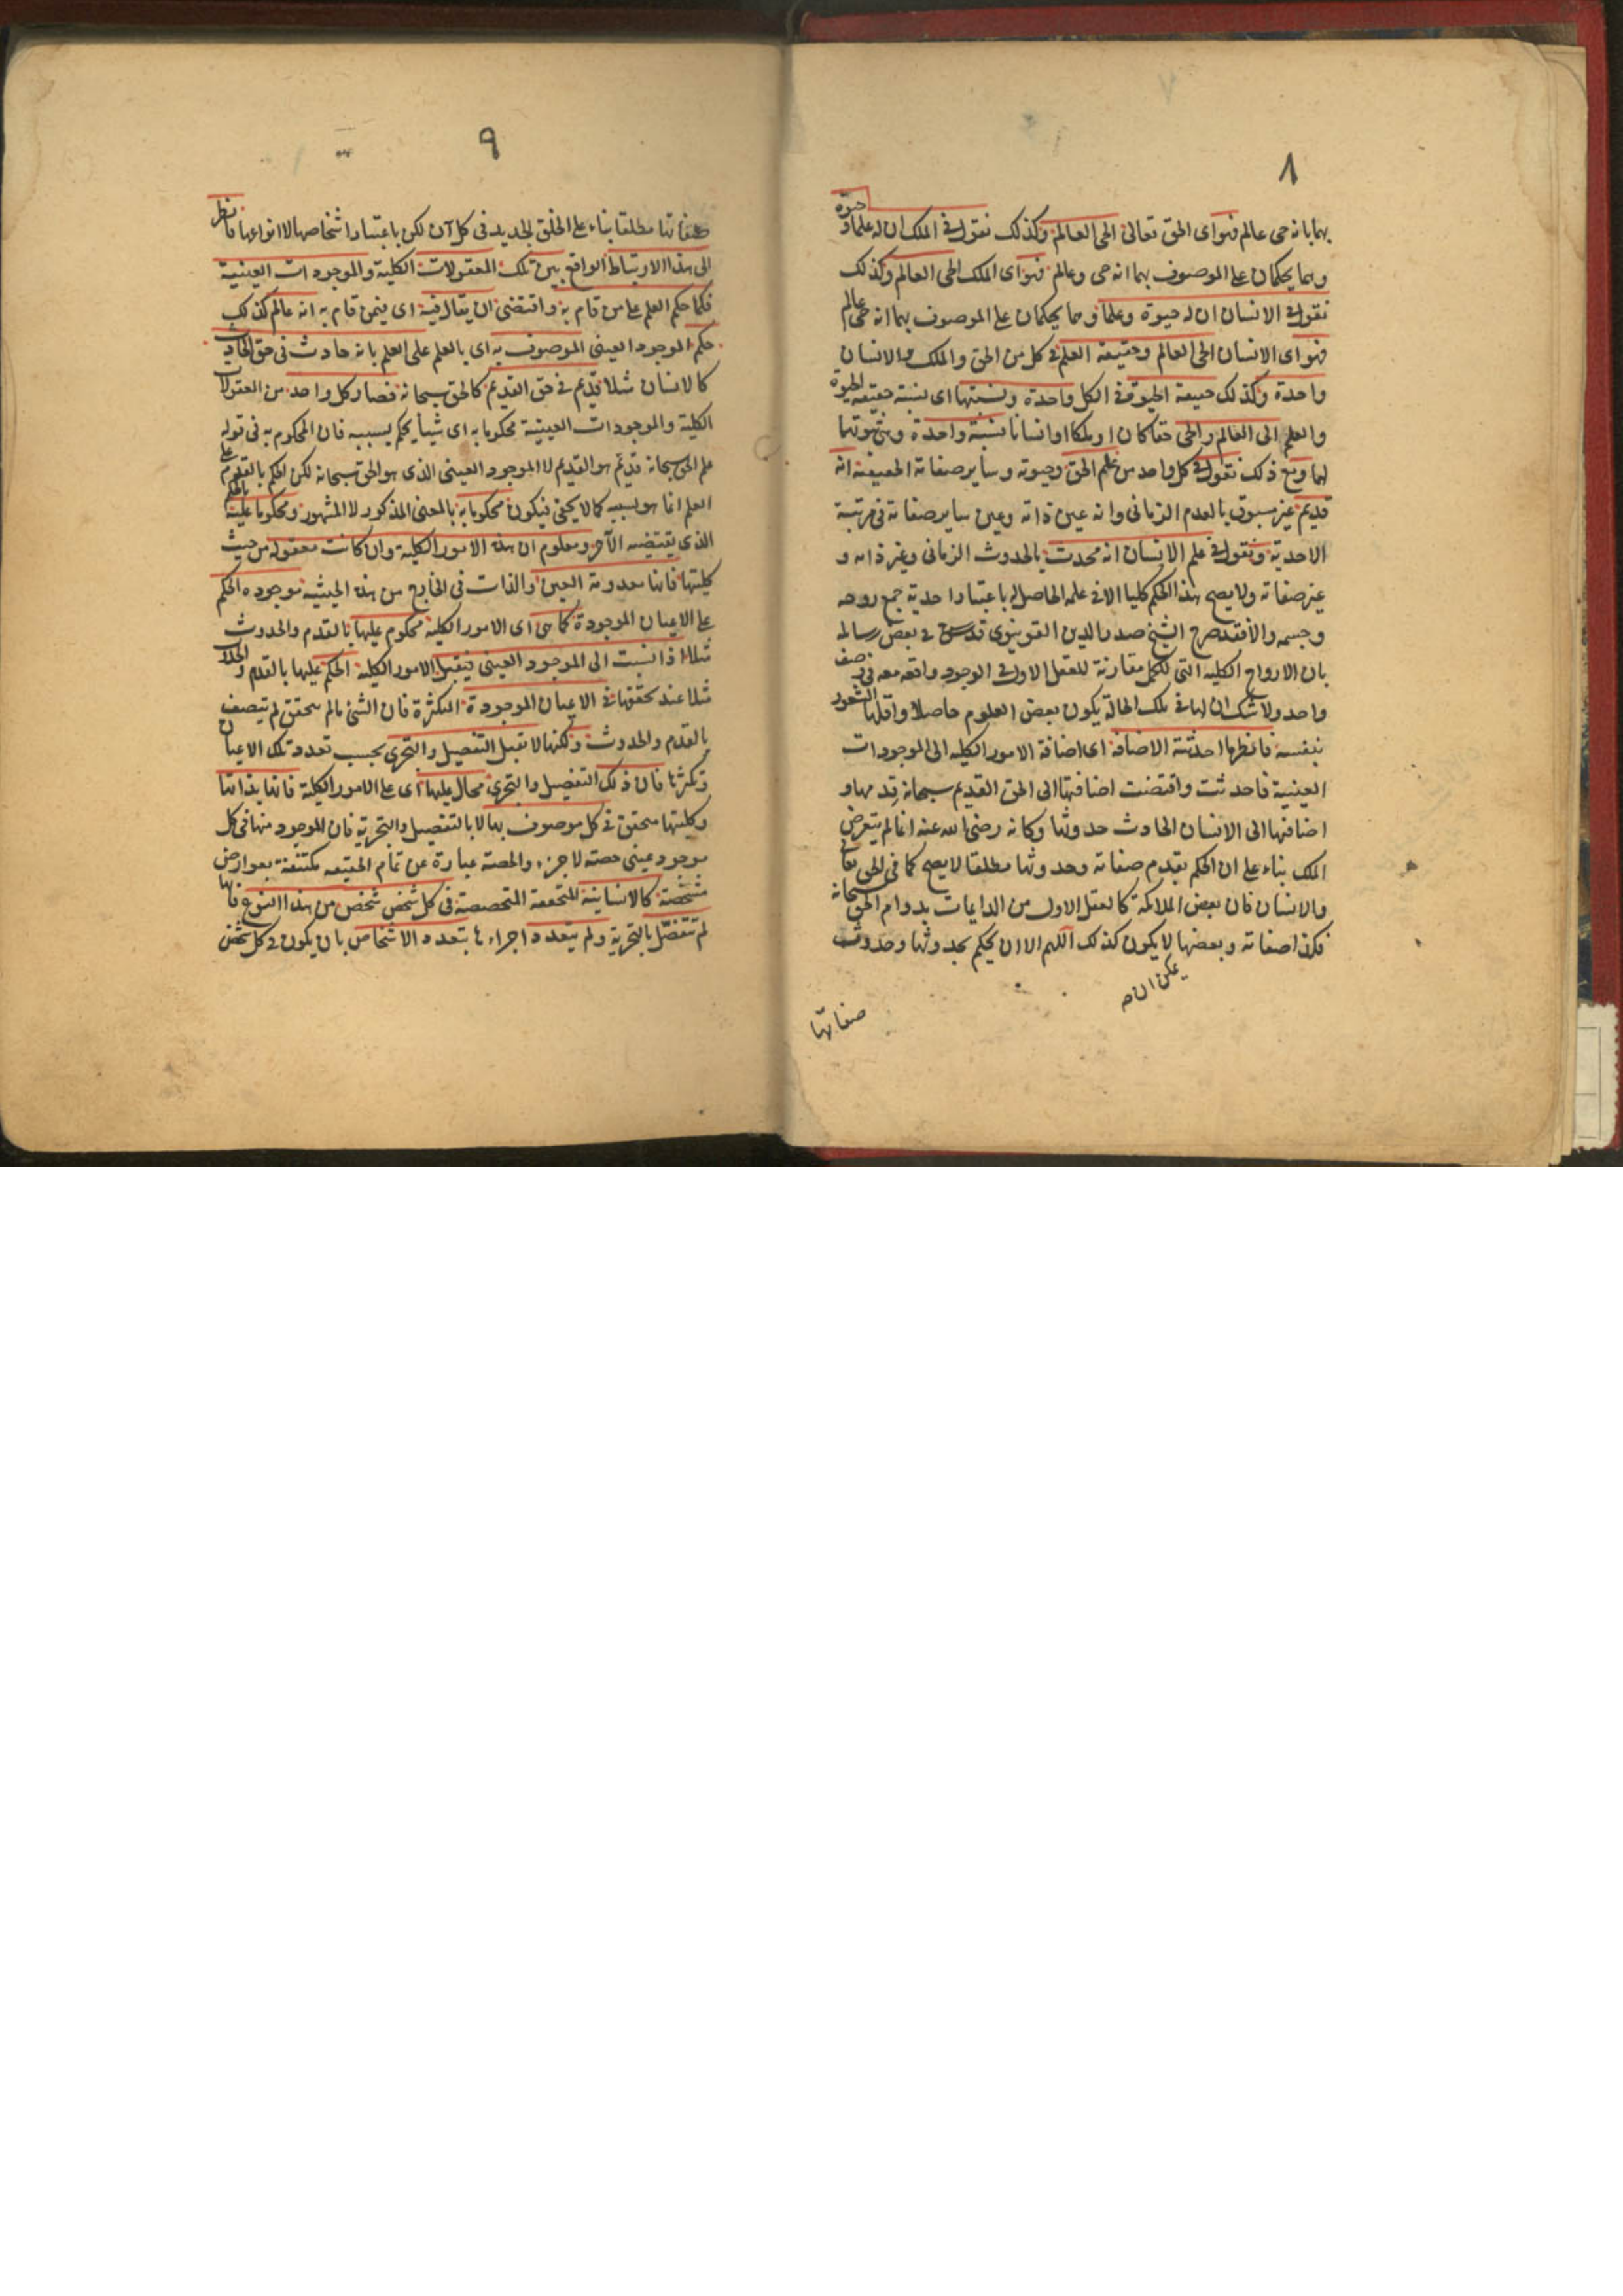 ٨
بهما بانه حى عالم فهو اى الحق تعالى الحى العالم وكذلك نقول فى الملك ان له علما و حيوة
وهما يحكمان على الموصوف بهما انه حى وعالم فهو اى الملك الحى العالم وكذلك
نقول فى الانسان ان له حيوة وعلما وهما يحكمان على الموصوف بهما انه حى عالم
فهو اى الانسان الحى العالم وحقيقة العلم فى كل من الحق والملك والانسان
واحدة وكذلك حقيقة الحيوة فى الكل واحدة ونسبتها اى نسبة حقيقة الحيوة
والعلم الى العالم والحى حقا كان او ملكا او انسانا نسبة واحدة وهى ثبوتهما
لهما ومع ذلك نقول فى كل واحد من علم الحق وحيوته وساير صفاته الحقيقة انه
قديم غير مسبوق بالعدم الزمانى وانه عين ذاته وعين ساير صفاته فى مرتبة
الاحدية ونقول فى علم الانسان انه محدث بالحدوث الزمانى وغير ذاته و
غير صفاته ولا يصح هذا الحكم كليا الا فى علمه الحاصل له باعتبار احدية جمع روحه
وجسمه والا فقد صرح الشيخ صدر الدين القونيوى قدس سره فى بعض رسائله
بان الارواح الكلية التى للكمل مقارنة للعقل الاول فى الوجود واقعة معه فى صف
واحد ولا شك ان لها فى تلك الحالة يكون بعض العلوم حاصلا واقلها الشعور
بنفسه فانظر ما احدثته الاضافة اى اضافة الامور الكلية الى الموجودات
العينية فاحدثت واقتضت اضافتها الى الحق القديم سبحانه قدمها و
اضافتها الى الانسان الحادث حدوثها وكانه رضى الله عنه انما لم يتعرض
الملك بناء على ان الحكم بقدم صفاته وحدوثها مطلقا لا يصح كما فى الحق تعالى
والانسان فان بعض الملائكة كالعقل الاول من الدايمات بدوام الحق سبحانه
فكذا صفاته وبعضها لا يكون كذلك اللهم الا ان يحكم بحدوثها وحدوث
يمكن ان
صفاتها
٩
صفاتها مطلقا بناء على الخلق الجديد فى كل آن لكن باعتبار اشخاصها لا انواعها فانظر
الى هذا الارتباط الواقع بين تلك المعقولات الكلية والموجودات العينية
فكما حكم العلم على من قام به واقتضى ان يقال فيه اى فيمن قام به انه عالم كذلك
حكم الموجود العينى الموصوف به اى بالعلم على العلم بانه حادث فى حق الحادث
كالانسان مثلا قديم فى حق القديم كالحق سبحانه فصار كل واحد من المعقولات
الكلية والموجودات العينية محكوما به اى شيأ يحكم بسببه فان المحكوم به فى قوله
علم الحق سبحانه قديم هو القديم لا الموجود العينى الذى هو الحق سبحانه لكن الحكم بالقدم على
العلم انما هو بسببه كما لا يخفى فيكون محكوما به بالمعنى المذكور لا المشهور ومحكوما عليه بالحكم
الذى يقتضيه الآخر ومعلوم ان هذه الامور الكلية وان كانت معقولة من حيث
كليتها فانها معدومة العين والذات فى الخارج من هذه الحيثية موجودة الحكم
على الاعيان الموجودة كما هى اى الامور الكلية محكوم عليها بالقدم والحدوث
مثلا اذا نسبت الى الموجود العينى فيقبل الامور الكلية الحكم عليها بالقدم و
مثلا عند تحققها فى الاعيان الموجودة المتكثرة فان الشئ ما لم يتحقق لم يتصف
بالقدم والحدوث ولكنها لا تقبل التفصيل والتجزى بحسب تعدد تلك الاعيان
وتكثرها فان ذلك التفصيل والتجزى محال عليها اى على الامور الكلية فانها بذاتها
وكليتها متحقق فى كل موصوف بها لا بالتفصيل والتجزية فان الموجود منها فى كل
موجود عينى حصته لا جزء والحصة عبارة عن تمام الحقيقة مكتنفة بعوارض
مشخصة كالانسانية المتحققة المتحصصة فى كل شخص شخص من هذا النوع فانها
لم تتفصل بالتجزية ولم يتعدد اجزاءها بتعدد الاشخاص بان يكون فى كل شخص